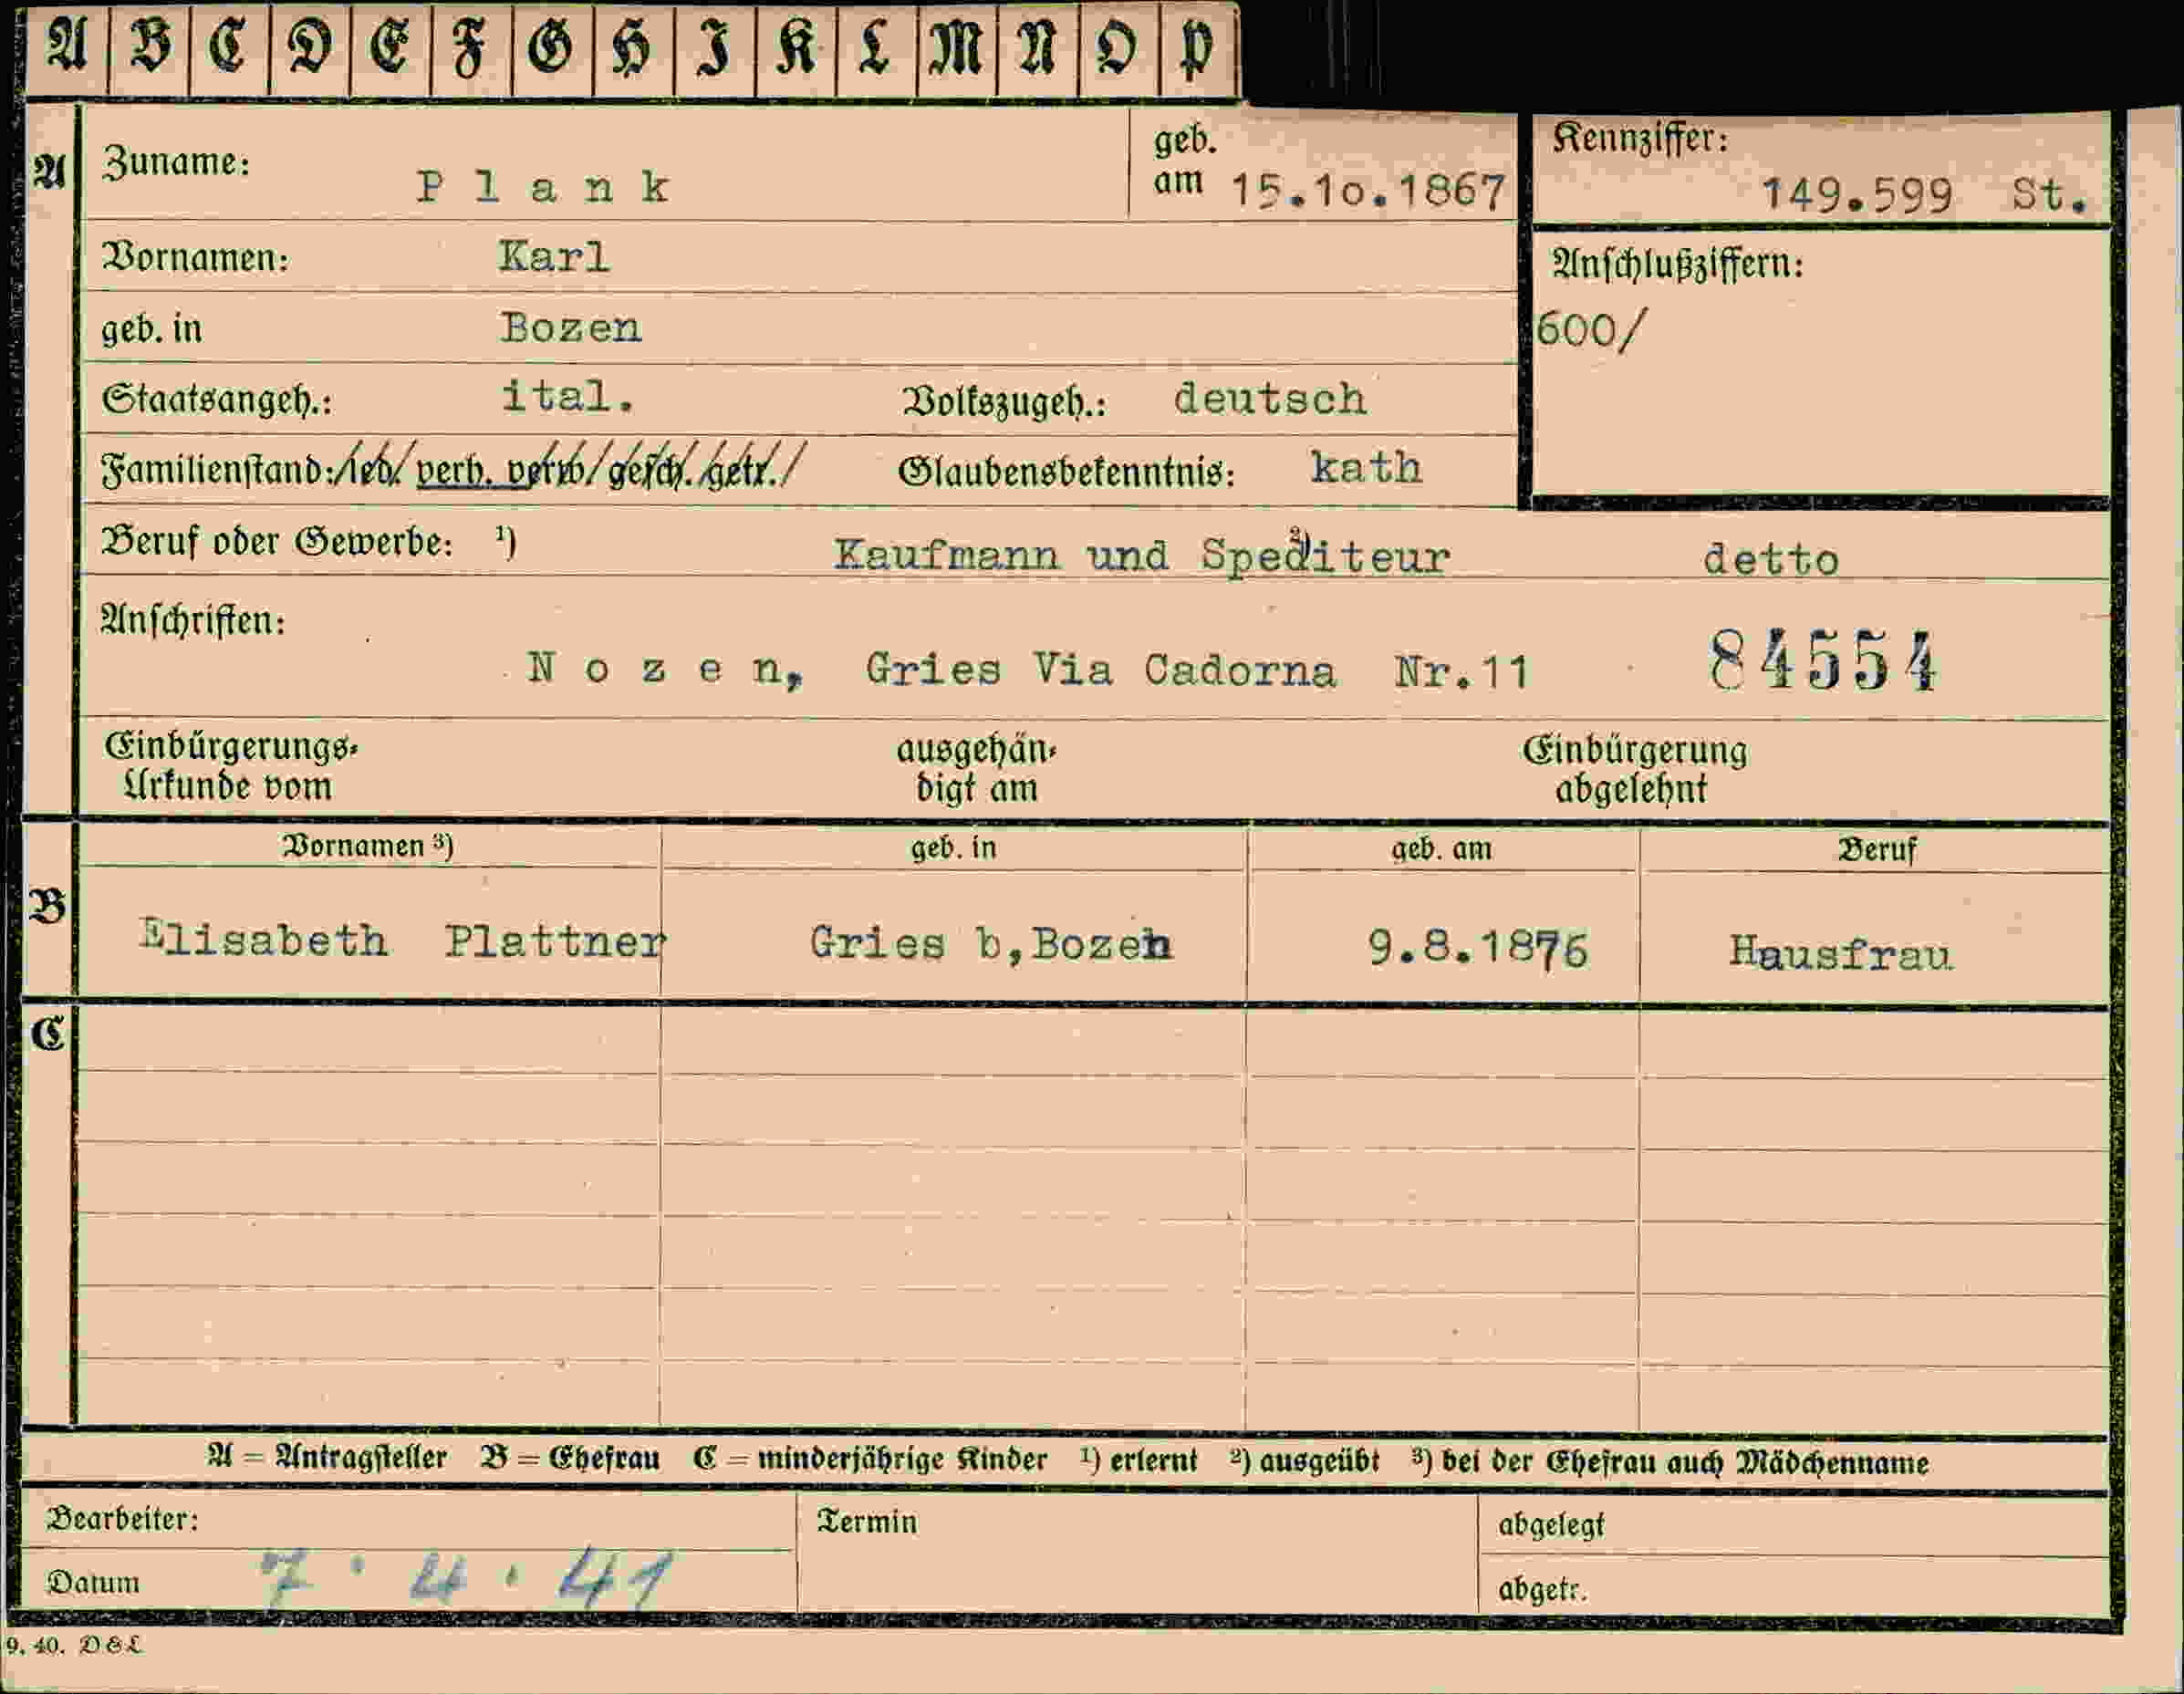 A B C D E F G H I K L M N O P
A Zuname: Plank geb. am 15.10.1867 Kennziffer: 149.599 St.
Vornamen: Karl Anschlußziffern:
geb. in Bozen 600/
Staatsangeh.: ital. Volkszugeh.: deutsch
Familienstand: led. verh. verw. gesch. getr. Glaubensbekenntnis: kath
Beruf oder Gewerbe: ¹) Kaufmann und Spediteur ²) detto
Anschriften:
Nozen, Gries Via Cadorna Nr.11 84554
Einbürgerungs-Urkunde vom ausgehän-digt am Einbürgerung abgelehnt
B Vornamen ³) geb. in geb. am Beruf
Elisabeth Plattner Gries b,Bozen 9.8.1876 Hausfrau
C
A = Antragsteller B = Ehefrau C = minderjährige Kinder ¹) erlernt ²) ausgeübt ³) bei der Ehefrau auch Mädchenname
Bearbeiter: Termin abgelegt
Datum 7.4.41 abgetr.
9. 40. D & L